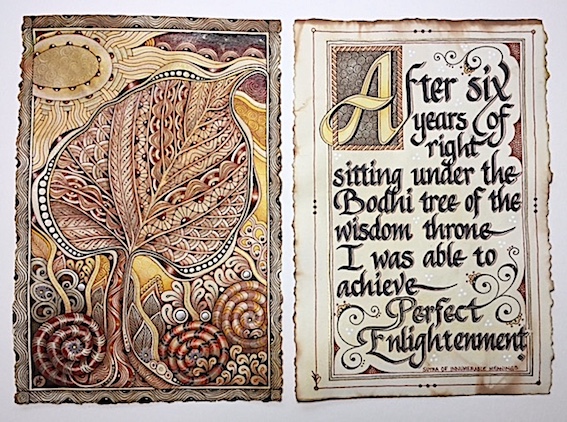 After six
years of
right
sitting under the
Bodhi tree of the
wisdom throne
I was able to
achieve
Perfect
Enlightenment
SUTRA OF INNUMERABLE MEANINGS